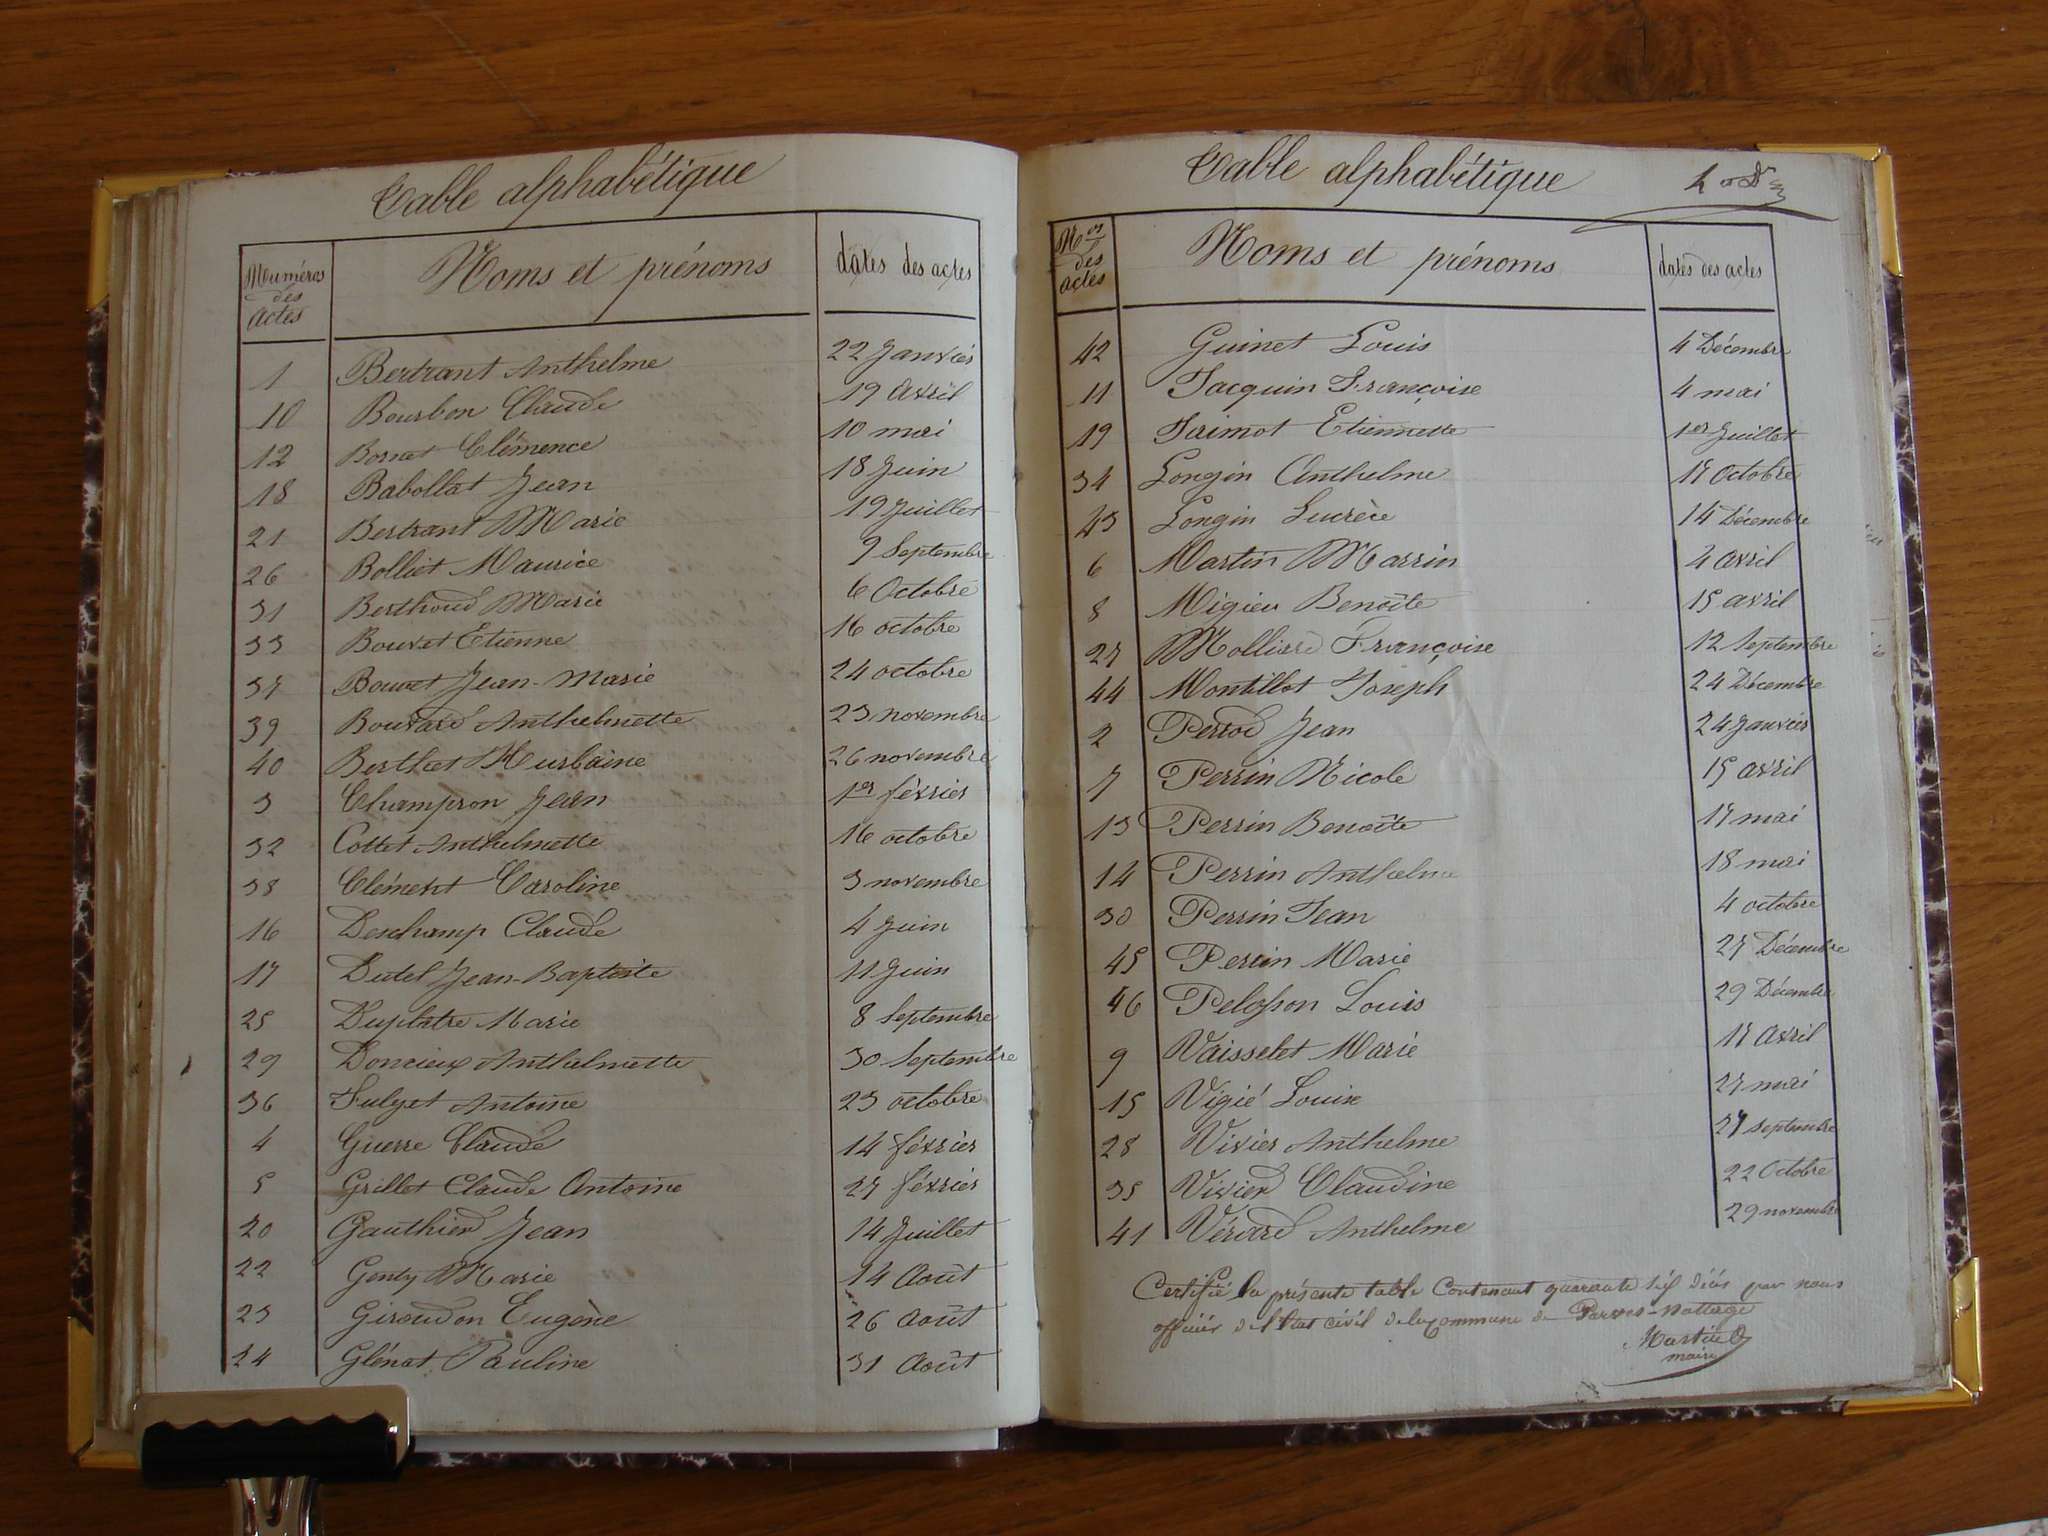 Table alphabétique
Numéros des actes Noms et prénoms dates des actes
1 Bertrant Anthelme 22 Janvier
10 Bourbon Claude 19 avril
12 Bornet Clémence 10 mai
18 Babollat Jean 18 Juin
21 Bertrant Marie 19 Juillet
26 Bolliet Maurice 9 Septembre
31 Berthoud Marie 6 Octobre
33 Bouvet Etienne 16 octobre
37 Bouvet Jean-Marie 24 octobre
39 Bouvard Anthelmette 23 novembre
40 Berthet Hurbaine 26 novembre
3 Champron Jean 1er février
32 Cottet Anthelmette 16 octobre
38 Clément Caroline 3 novembre
16 Deschamp Claude 4 Juin
17 Dutel Jean-Baptiste 11 Juin
25 Duplatre Marie 8 Septembre
29 Doncieux Anthelmette 30 Septembre
36 Antoine 23 octobre
4 Guerre Claude 14 février
5 Grillet Claude Antoine 27 février
20 Gauthier Jean 14 Juillet
22 Genty Marie 14 Août
23 Giroudon Eugène 26 Août
24 Glénat Pauline 31 Août
Table alphabétique
Nos des actes Noms et prénoms dates des actes
42 Guinet Louis 4 Décembre
11 Jacquin Françoise 4 mai
19 Jaimot Etiennette 1er Juillet
34 Longin Anthelme 17 Octobre
43 Longin Lucrèce 14 Décembre
6 Martin Marrin 2 avril
8 Migieu Benoîte 15 avril
27 Molliard Françoise 12 Septembre
44 Montillot Joseph 24 Décembre
2 Perrod Jean 24 Janvier
7 Perrin Nicole 15 avril
13 Perrin Benoîte 17 mai
14 Perrin Anthelme 18 mai
30 Perrin Jean 4 octobre
45 Perrin Marie 27 Décembre
46 Pelosson Louis 29 Décembre
9 Vaisselet Marie 17 Avril
15 Vigié Louise 27 mai
28 Vivier Anthelme 27 septembre
35 Vivier Claudine 22 Octobre
41 Vérard Anthelme 29 novembre
Certifié la présente table Contenant quarante six décès par nous
officier de l'Etat civil de la Commune de Parves-Nattage
Martin
maire